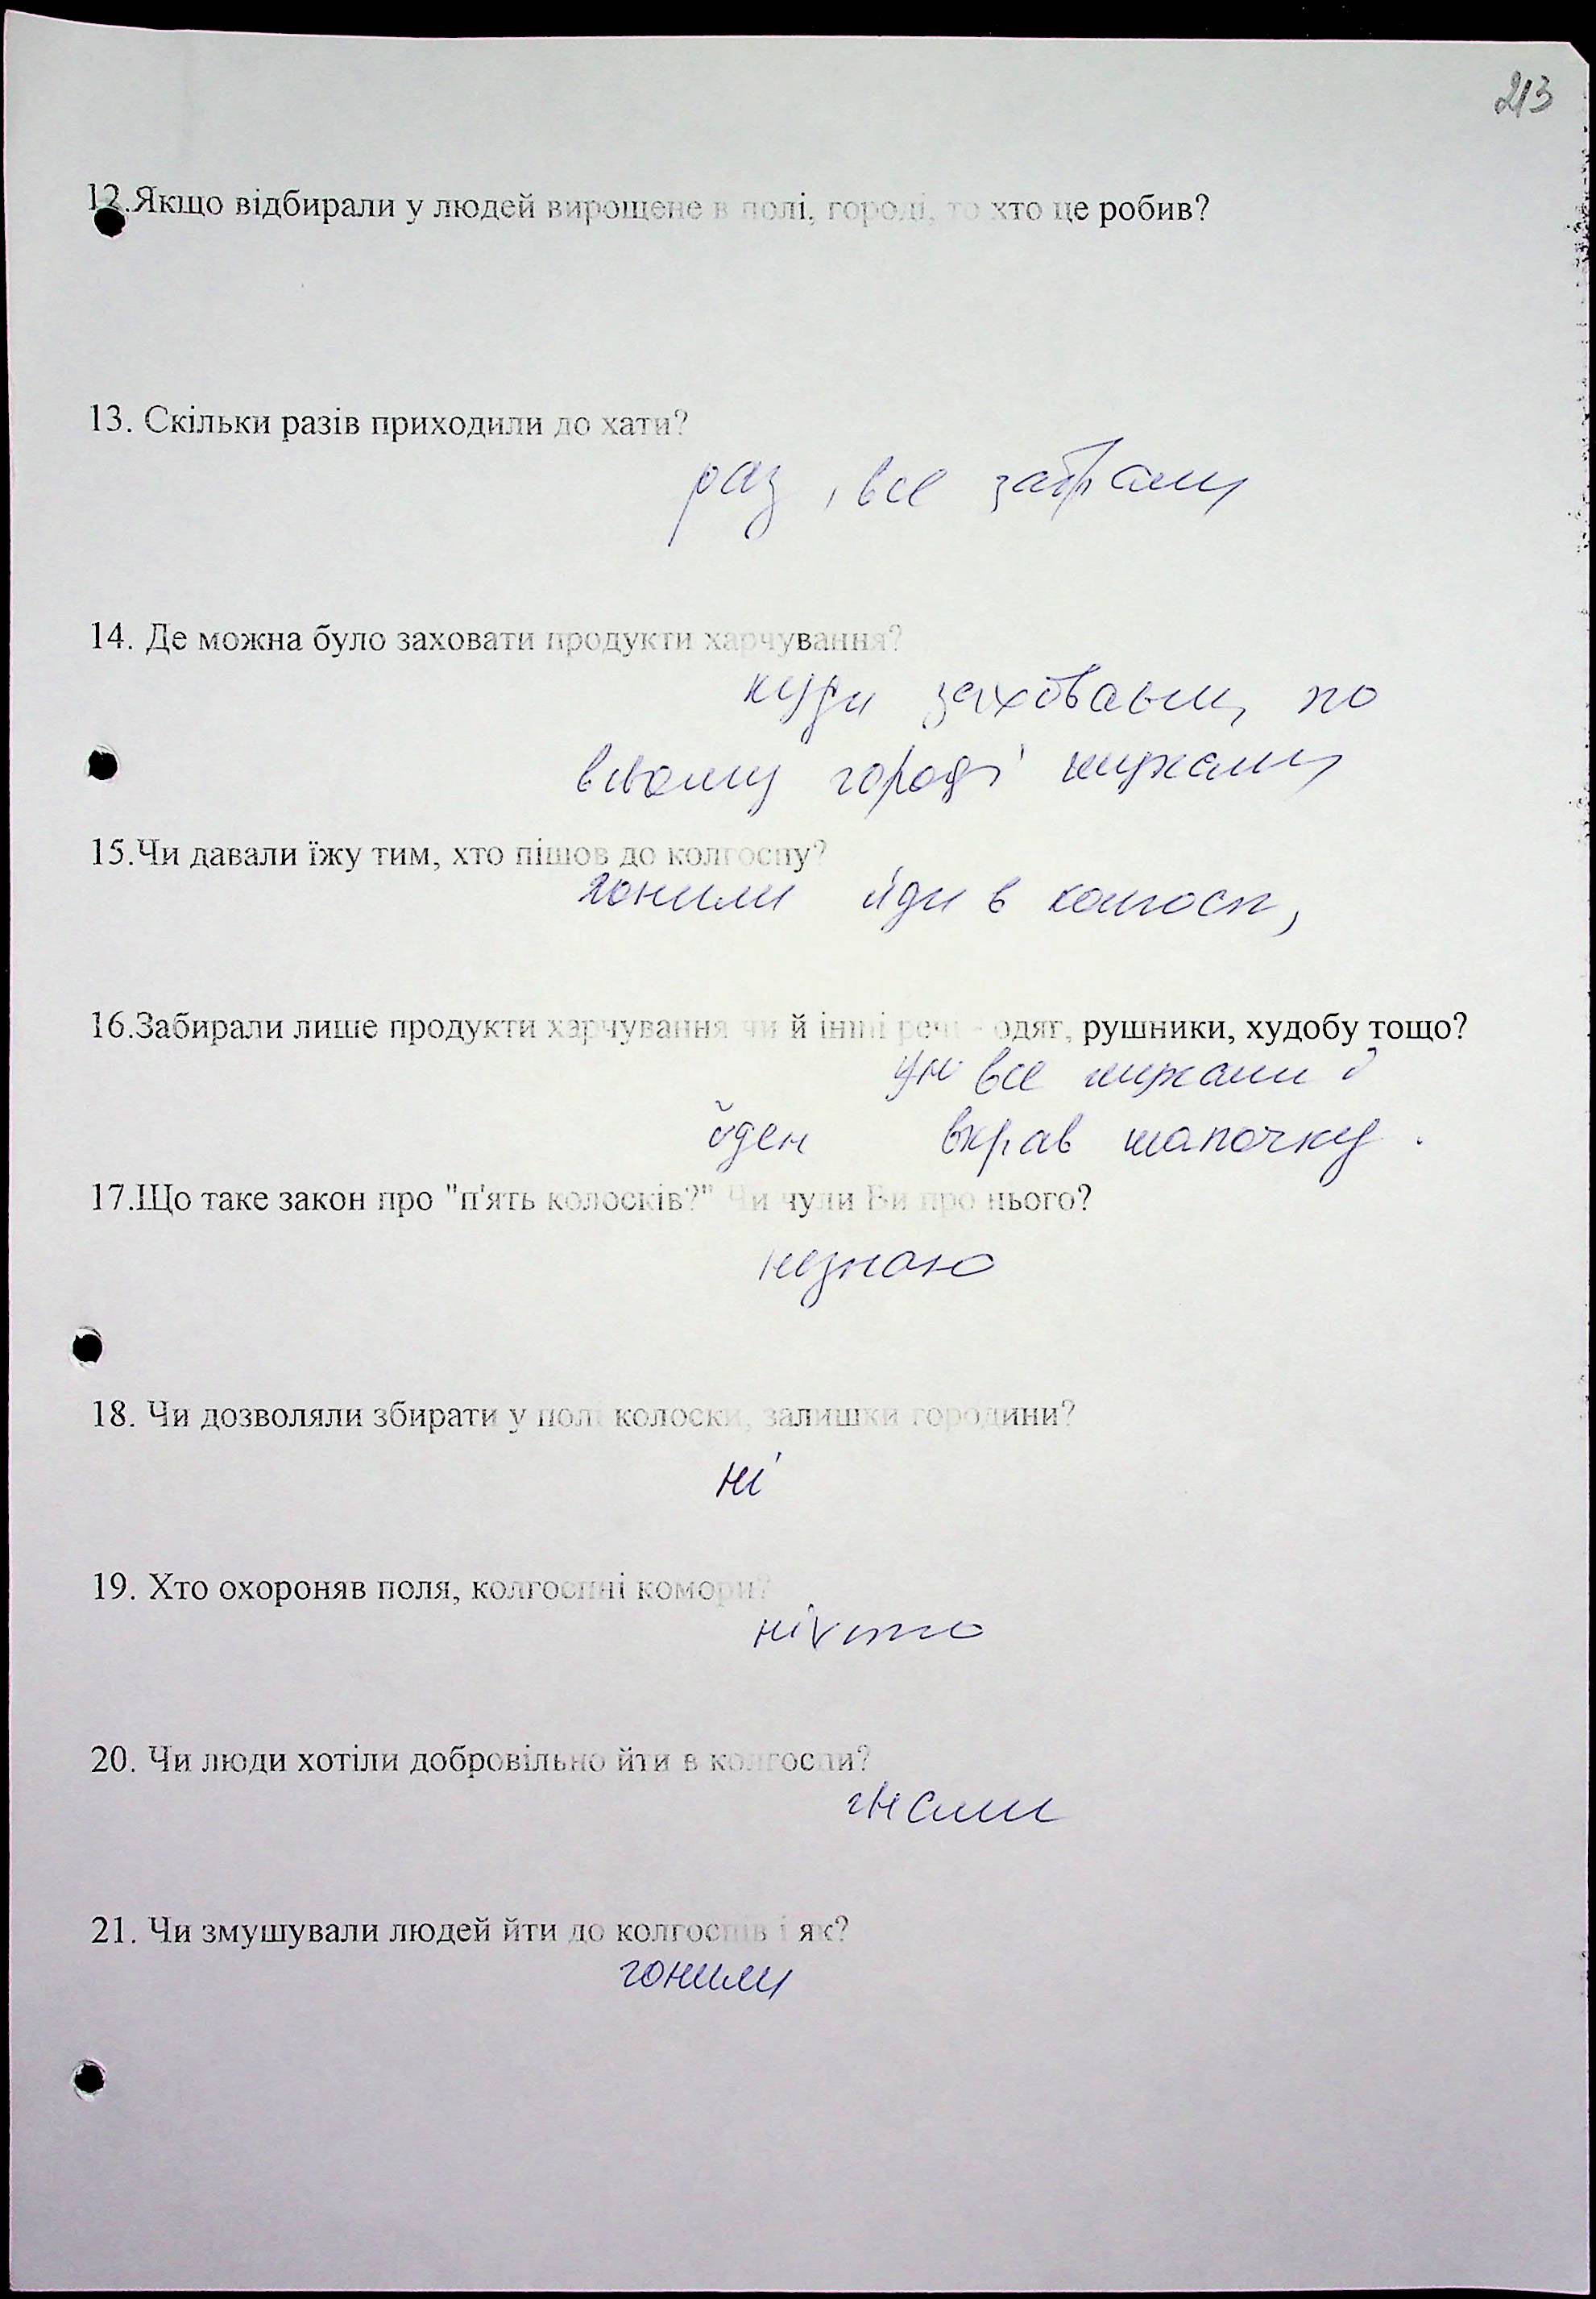 213
12.Якщо відбирали у людей вирощене в полі, городі, то хто це робив?
13. Скільки разів приходили до хати?
раз, все забрали
14. Де можна було заховати продукти харчування?
куди заховаєш, по
всьому городі шукали
15.Чи давали їжу тим, хто пішов до колгоспу?
гонили йди в колгосп,
16.Забирали лише продукти харчування чи й інші речі - одяг, рушники, худобу тощо?
все шукали
оден вкрав шапочку.
17.Що таке закон про "п'ять колосків?" Чи чули Ви про нього?
незнаю
18. Чи дозволяли збирати у полі колоски, залишки городини?
ні
19. Хто охороняв поля, колгоспні комори?
ніхто
20. Чи люди хотіли добровільно йти в колгоспи?
гнали
21. Чи змушували людей йти до колгоспів і як?
гонили